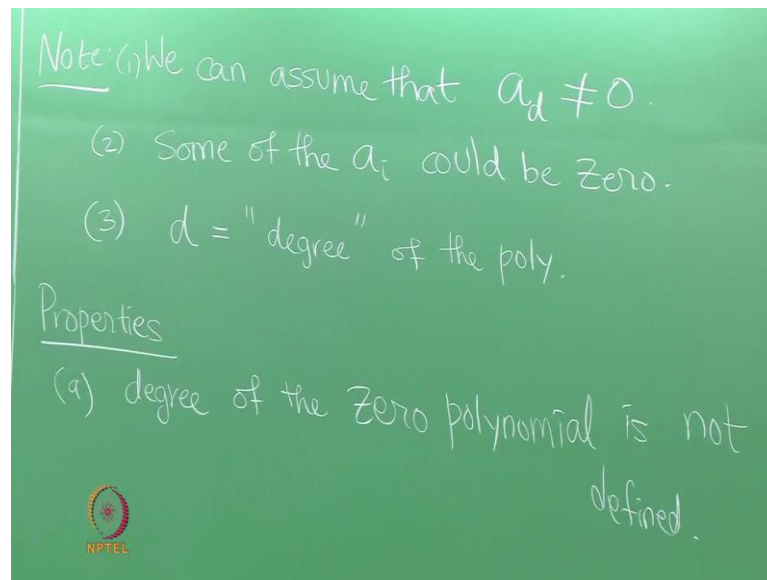 Note: (1) We can assume that a_d ≠ 0.
(2) Some of the a_i could be zero.
(3) d = "degree" of the poly.
Properties
(a) degree of the zero polynomial is not
defined.
NPTEL